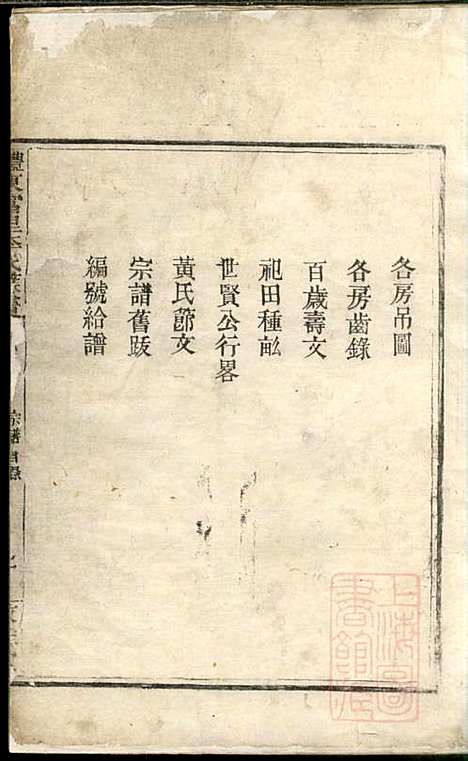 各房吊圖
各房齒錄
百歲壽文
祀田種畝
世賢公行畧
黃氏節文
宗譜舊跋
編號給譜
宗譜目錄
上海圖書館藏